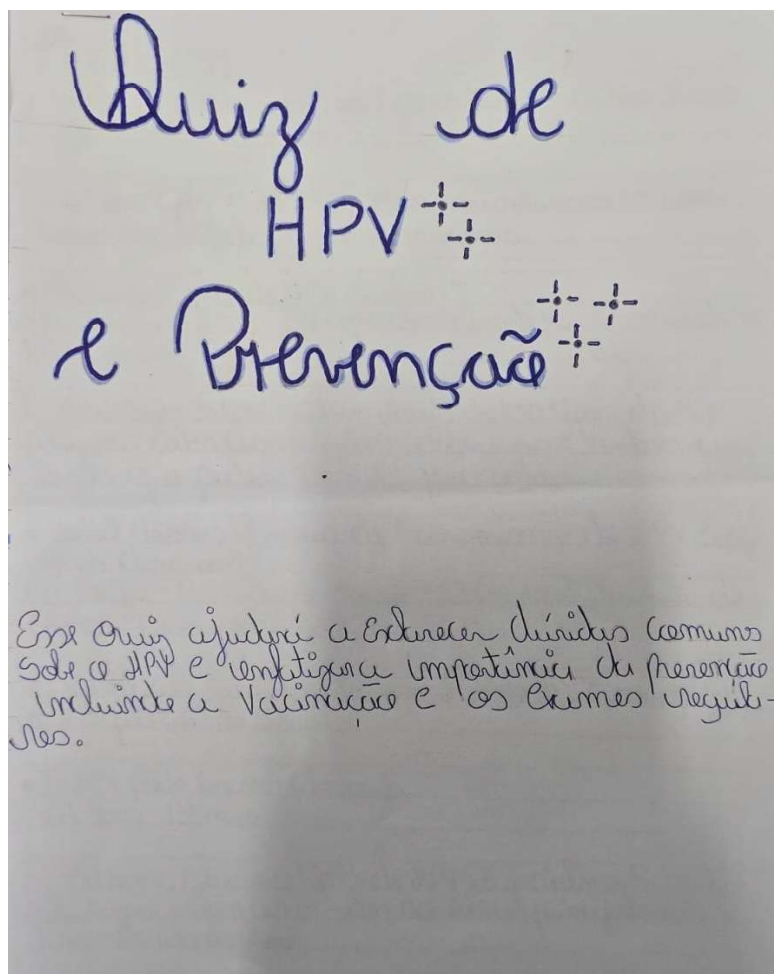 Quiz de
HPV
e Prevenção
Esse Quiz ajudará a Esclarecer dúvidas comuns
sobe o HPV e enfatizar a importância da prevenção
incluinte a Vacinação e os Exames regula-
res.